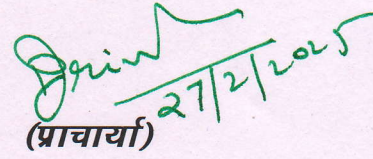 27/2/2025
(प्राचार्या)